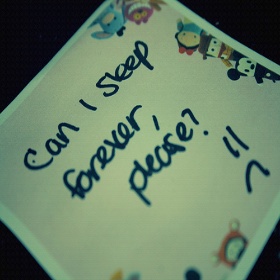 Can I sleep
forever,
please?
"